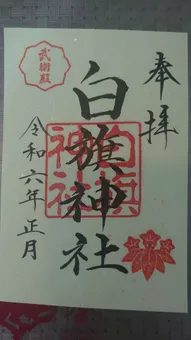 奉拝
白旗神社
白旗神社
武衛殿
令和六年正月